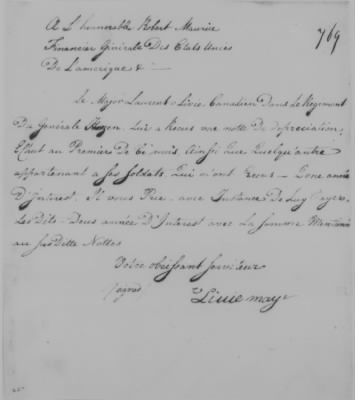 A L honnorable Robert Maurice
769
Financier Générale Des Etats Unies
De L'amerique & -
Le Major Laurent Livie Canadien Dans Le Regiment
Du Genérale Hazen. Lui a Recus une notte De Depreciation,
Estant au Premiere De Ce mois, Ainsi que Quelqu'autre
appartenant a ses soldats, Qui n'ont recus - Done année
D'Interest. Si vous Prie, avec Instance De Luy Payer
Les Dits Deus année D'Interest avec La somme Mentionné
au susditte Nottes
Votre obeissant serviteur
signé
Livie may r